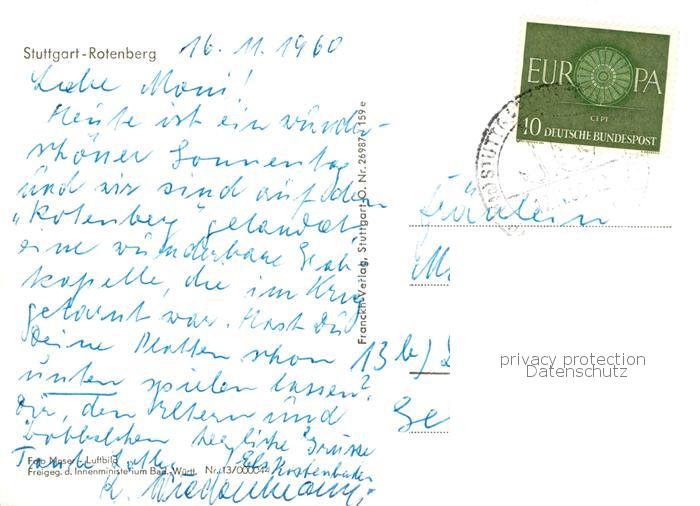 Stuttgart-Rotenberg 16. 11. 1960
Liebe Moni!
Heute ist ein wunder-
schöner Sonnentag
und wir sind auf dem
"Rotenberg" gelandet
eine wunderbare Grab-
kapelle, die im Krieg
getarnt war. Hast Du
Deine Platten schon
unten spielen lassen?
Dir, den Eltern und
herzliche Grüsse
Tante
Foto Moser - Luftbild
Freigeg. d. Innenministerium Bad.-Württ. Nr. 13/000044
Franckh-Verlag, Stuttgart-O. Nr. 26987/159e
EUROPA
CEPT
10 DEUTSCHE BUNDESPOST
STUTTG
Fräulein
M
13 b)
Ge
privacy protection
Datenschutz